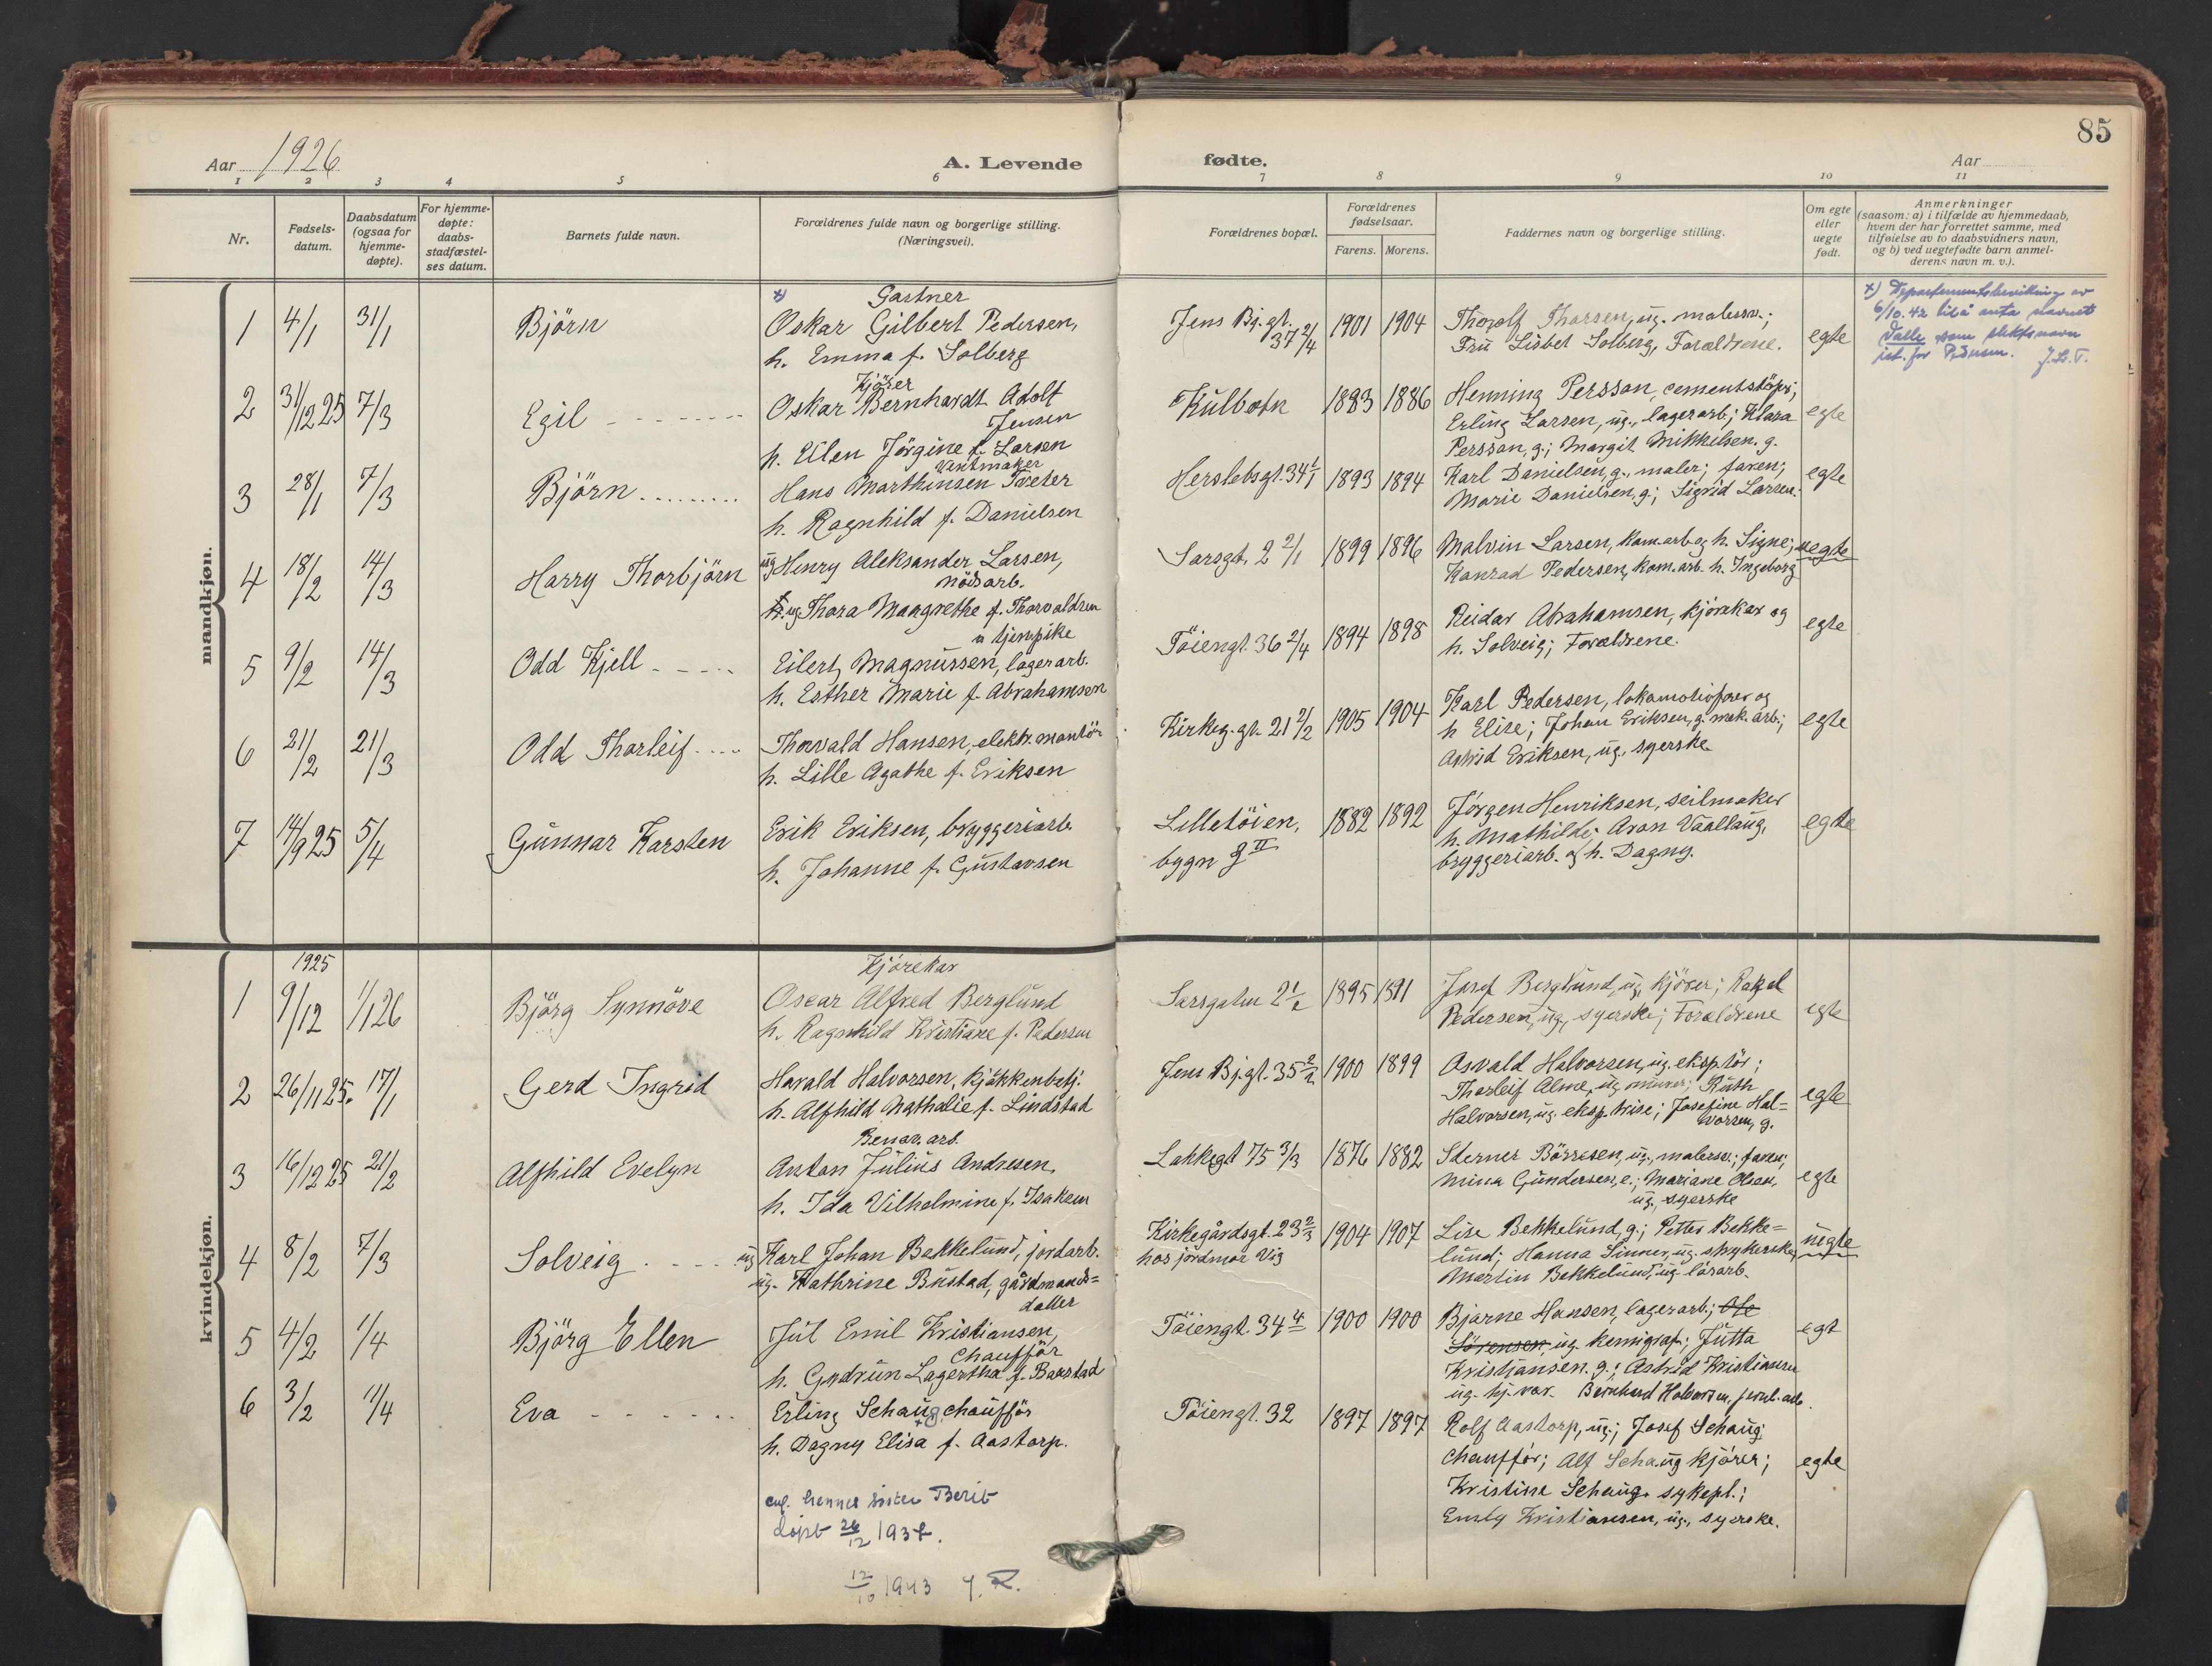 85
Aar 1926
A. Levende
fødte.
Aar
1 2 3 4 5 6 7 8 9 10 11
Nr.
Fødsels-
datum.
Daabsdatum
(ogsaa for
hjemme-
døpte).
For hjemme-
døpte:
daabs-
stadfæstel-
ses datum.
Barnets fulde navn.
Forældrenes fulde navn og borgerlige stilling.
(Næringsvei).
Forældrenes bopæl.
Forældrenes
fødselsaar.
Farens. Morens.
Faddernes navn og borgerlige stilling.
Om egte
eller
uegte
født.
Anmerkninger
(saasom: a) i tilfælde av hjemmedaab,
hvem der har forrettet samme, med
tilføielse av to daabsvidners navn,
og b) ved uegtefødte barn anmel-
derens navn m. v.).
mandkjøn.
1 4/1 31/1 Björn
x) Gartner
Oskar Gilbert Pedersen,
h. Emma f. Solberg
Jens Bj. gt.
37 2/4
1901 1904
Thorolf Thorsen, ug. malersv.;
Fru Lisbet Solberg, Forældrene.
egte
x) Departementsbevilling av
6/10.42 til å anta navnet
Valle som slektsnavn
ist. for Pedersen. J.L.T.
2 31/12 25 7/3 Egil
Kjörer
Oskar Bernhardt Adolf
Jensen
h. Ellen Jörgine f. Larsen
Kulbotn
1883 1886
Henning Persson, cementstöper;
Erling Larsen, ug., lagerarb; Klara
Persson, g.; Margit Mikkelsen. g.
egte
3 28/1 7/3 Björn
Hans Marthinsen Tveter
h. Ragnhild f. Danielsen
Herslebsgt. 34 1/1
1893 1894
Karl Danielsen, g., maler; faren;
Marie Danielsen, g.; Sigrid Larsen.
egte
4 18/2 14/3 Harry Thorbjörn
ug Henry Aleksander Larsen,
nödsarb.
ug Thora Maagrethe f. Thorvaldsen
tjenpike
Sarsgt. 2 2/1
1899 1896
Malvin Larsen, kom. arb og h. Signe;
Konrad Pedersen, kom. arb. h. Ingeborg
uegte
5 9/2 14/3 Odd Kjell
Eilert Magnussen, lagerarb.
h. Esther Marie f. Abrahamsen
Töiengt. 36 2/4
1894 1898
Reidar Abrahamsen, kjörekar og
h. Solveig; Forældrene.
egte
6 21/2 21/3 Odd Thorleif
Thorvald Hansen, elektr. montör
h. Lille Agathe f. Eriksen
Kirkeg. gt. 21 2/2
1905 1904
Karl Pedersen, lokamotivfører og
h Elise; Johan Eriksen, g. mek. arb;
Astrid Eriksen, ug. syerske
egte
7 14/9 25 5/4 Gunnar Karsten
Erik Eriksen, bryggeriarb.
h. Johanne f. Gustavsen
Lilletöien,
bygn J II
1882 1892
Jörgen Henriksen, seilmaker
h. Mathilde; Aron Vaallaug,
bryggeriarb. og h. Dagny.
egte
kvindekjøn.
1925
1 9/12 1/1 26 Björg Synnöve
Kjörekar
Oscar Alfred Berglund
h. Ragnhild Kristiane f. Pedersen
Sarsgaten 2
1895 1891
Josef Berglund, ug, kjörer; Rakel
Pedersen, ug, syerske; Forældrene
egte
2 26/11 25. 17/1 Gerd Ingrid
Harald Halvorsen, kjökkenbetj.
h. Alfhild Nathalie f. Lindstad
Jens Bj. gt. 35 2/2
1900 1899
Osvald Halvorsen, ug. eksp. tör;
Thorleif Alme, ug. murer; Ruth
Halvorsen, ug. eksp. trise; Josefine Hal=
vorsen, g.
egte
3 16/12 25 21/2 Alfhild Evelyn
Renov. arb.
Anton Julius Andresen,
h. Ida Vilhelmine f. Isaksen
Lakkegt 75 3/3
1876 1882
Sterner Börresen, ug., malersv.; faren;
Mina Gundersen, e.; Mariane Olsen,
ug, syerske
egte
4 8/2 7/3 Solveig
ug Karl Johan Bekkelund, jordarb.
ug. Kathrine Bustad, gårdmands=
datter
Kirkegårdsgt. 23 2/3
hos jordmor Vig
1904 1907
Lise Bekkelund, g.; Petter Bekke=
lund; Hanna Linner, ug. strykerske;
Martin Bekkelund, ug. lösarb.
uegte
5 4/2 1/4 Björg Ellen
Jul Emil Kristiansen,
Chaufför
h. Gudrun Lagertha f. Baustad
Töiengt. 34 4
1900 1900
Bjarne Hansen, lagerarb.; Ole
Sörensen, ug. kemigraf; Jutta
Kristiansen. g.; Astrid Kristiansen
ug. hj. vær. Bernhard Halvorsen, jernb. arb.
egt
6 3/2 11/4 Eva
Erling Schaug, chaufför
h. Dagny Elisa f. Aastorp.
Töiengt. 32
1897 1897
Rolf Aastorp, ug.; Josef Schaug
chaufför; Alf Schaug kjörer;
Kristine Schaug. sykepl.;
Emly Kristiansen, ug., syerske.
egte
hennes söster Berit
döpt 26/12 193
12/10 1943 J. R.